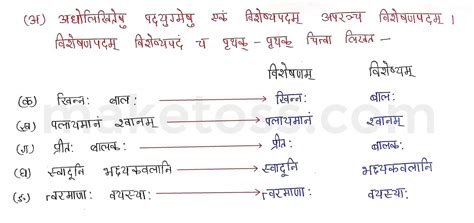 (अ) अधोलिखितेषु पदयुग्मेषु एकं विशेष्यपदम् अपरञ्च विशेषणपदम् ।
विशेषणपदम् विशेष्यपदं च पृथक् - पृथक् चित्वा लिखत -
विशेषणम् विशेष्यम्
(क) खिन्नः बालः → खिन्नः बालः
(ख) पलायमानं श्वानम् → पलायमानं श्वानम्
(ग) प्रीतः बालकः → प्रीतः बालकः
(घ) स्वादूनि भक्ष्यकवलानि → स्वादूनि भक्ष्यकवलानि
(ङ) त्वरमाणाः वयस्याः → त्वरमाणाः वयस्याः